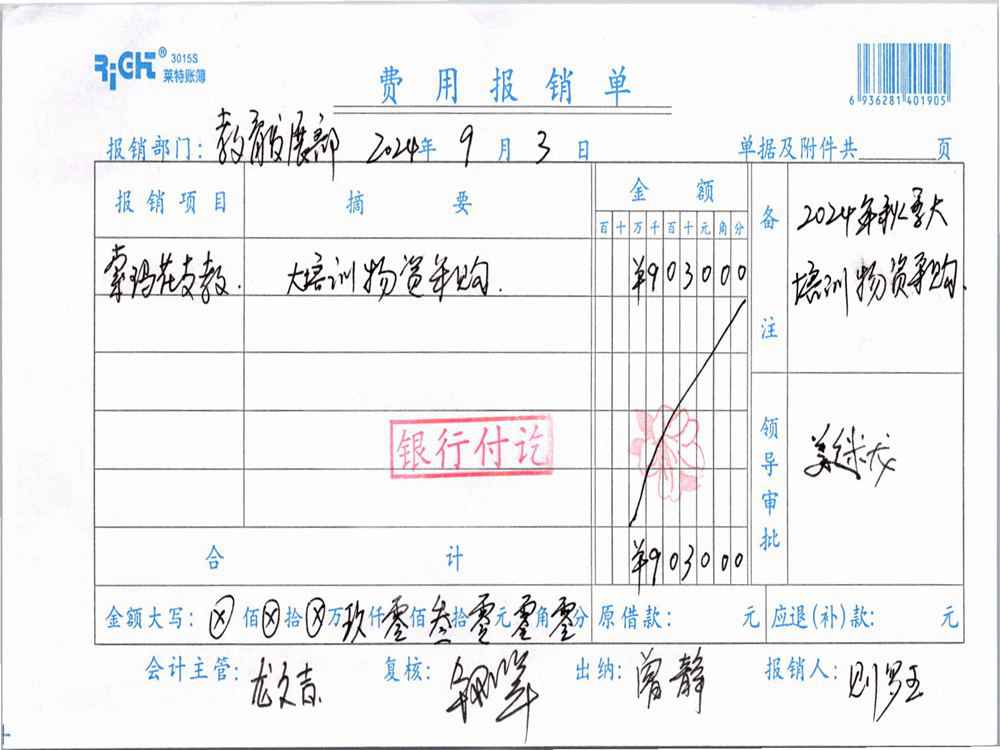 RiGHT® 3015S
莱特账簿
费用报销单
6 936281 401905
报销部门：教育发展部 2024年 9月 3日 单据及附件共 页
报销项目 摘要 金额 备注
百十万千百十元角分
2024年秋季大
培训物资采购.
索玛花支教. 大培训物资采购. ¥903000
银行付讫
领导审批
合计 ¥903000
金额大写：ⓧ佰ⓧ拾ⓧ万玖仟零佰叁拾零元零角零分 原借款： 元 应退(补)款： 元
会计主管：龙文吉 复核： 出纳：曾静 报销人：则罗王